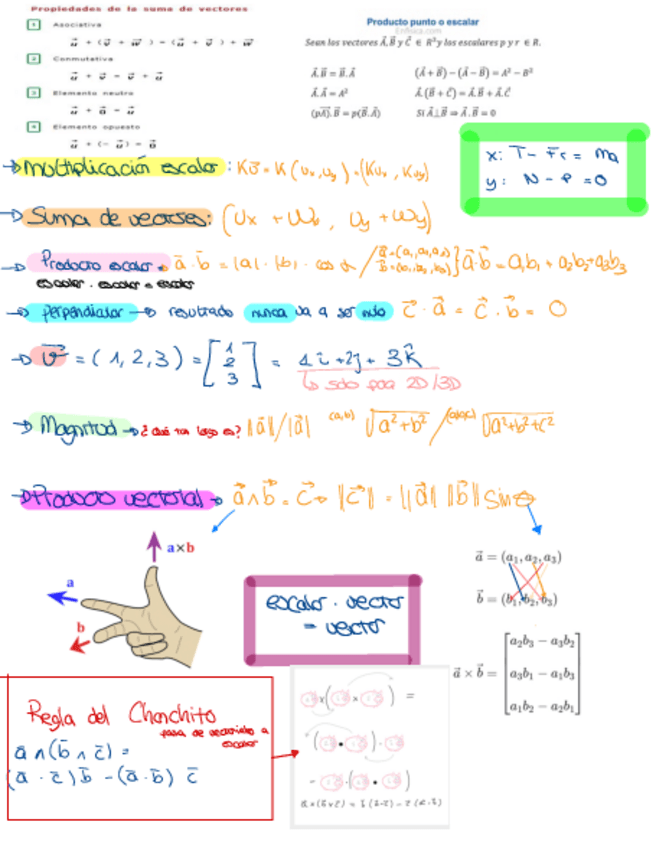 Propiedades de la suma de vectores
1 Asociativa
u⃗ + (v⃗ + w⃗) = (u⃗ + v⃗) + w⃗
2 Conmutativa
u⃗ + v⃗ = v⃗ + u⃗
3 Elemento neutro
u⃗ + 0⃗ = u⃗
4 Elemento opuesto
u⃗ + (− u⃗) = 0⃗
Producto punto o escalar
Sean los vectores A⃗,B⃗ y C⃗ ∈ R² y los escalares p y r ∈ R.
A⃗.B⃗ = B⃗.A⃗ (A⃗ + B⃗) − (A⃗ − B⃗) = A² − B²
A⃗.A⃗ = A² A⃗.(B⃗ + C⃗) = A⃗.B⃗ + A⃗.C⃗
(pA⃗).B⃗ = p(B⃗.A⃗) Si A⃗⊥B⃗ ⇒ A⃗.B⃗ = 0
x: T - Fr = ma
y: N - P = 0
→ Multiplicación escalar: Kv⃗ = K (Ux, Uy) = (KUx, KUy)
→ Suma de vectores: (Ux + Wx, Uy + Wy)
→ Producto escalar = a⃗ · b⃗ = |a| · |b| · cos α / a⃗=(a1,a2,a3) b⃗=(b1,b2,b3) } a⃗·b⃗ = a1b1 + a2b2 + a3b3
escalar · escalar = escalar
→ perpendicular → resultado nunca va a ser nulo c⃗ · a⃗ = c⃗ · b⃗ = 0
→ v⃗ = (1, 2, 3) = [1 2 3] = 1i + 2j + 3k̂
↳ solo para 2D/3D
→ Magnitud → ¿Qué tan largo es? ||a⃗|| / |a⃗| (a,b) √a²+b² / (a,b,c) √a²+b²+c²
→ Producto vectorial → a⃗ ∧ b⃗ = c⃗ → ||c⃗|| = ||a⃗|| ||b⃗|| Sin θ
a×b
a
b
escalar · vector
= vector
a⃗ = (a₁, a₂, a₃)
b⃗ = (b₁, b₂, b₃)
a⃗ × b⃗ = [a₂b₃ − a₃b₂
a₃b₁ − a₁b₃
a₁b₂ − a₂b₁]
Regla del Chanchito
para de vectorial a
escalar
a̅ ∧ (b̅ ∧ c̅) =
(a̅ · c̅) b̅ - (a̅ · b̅) c̅